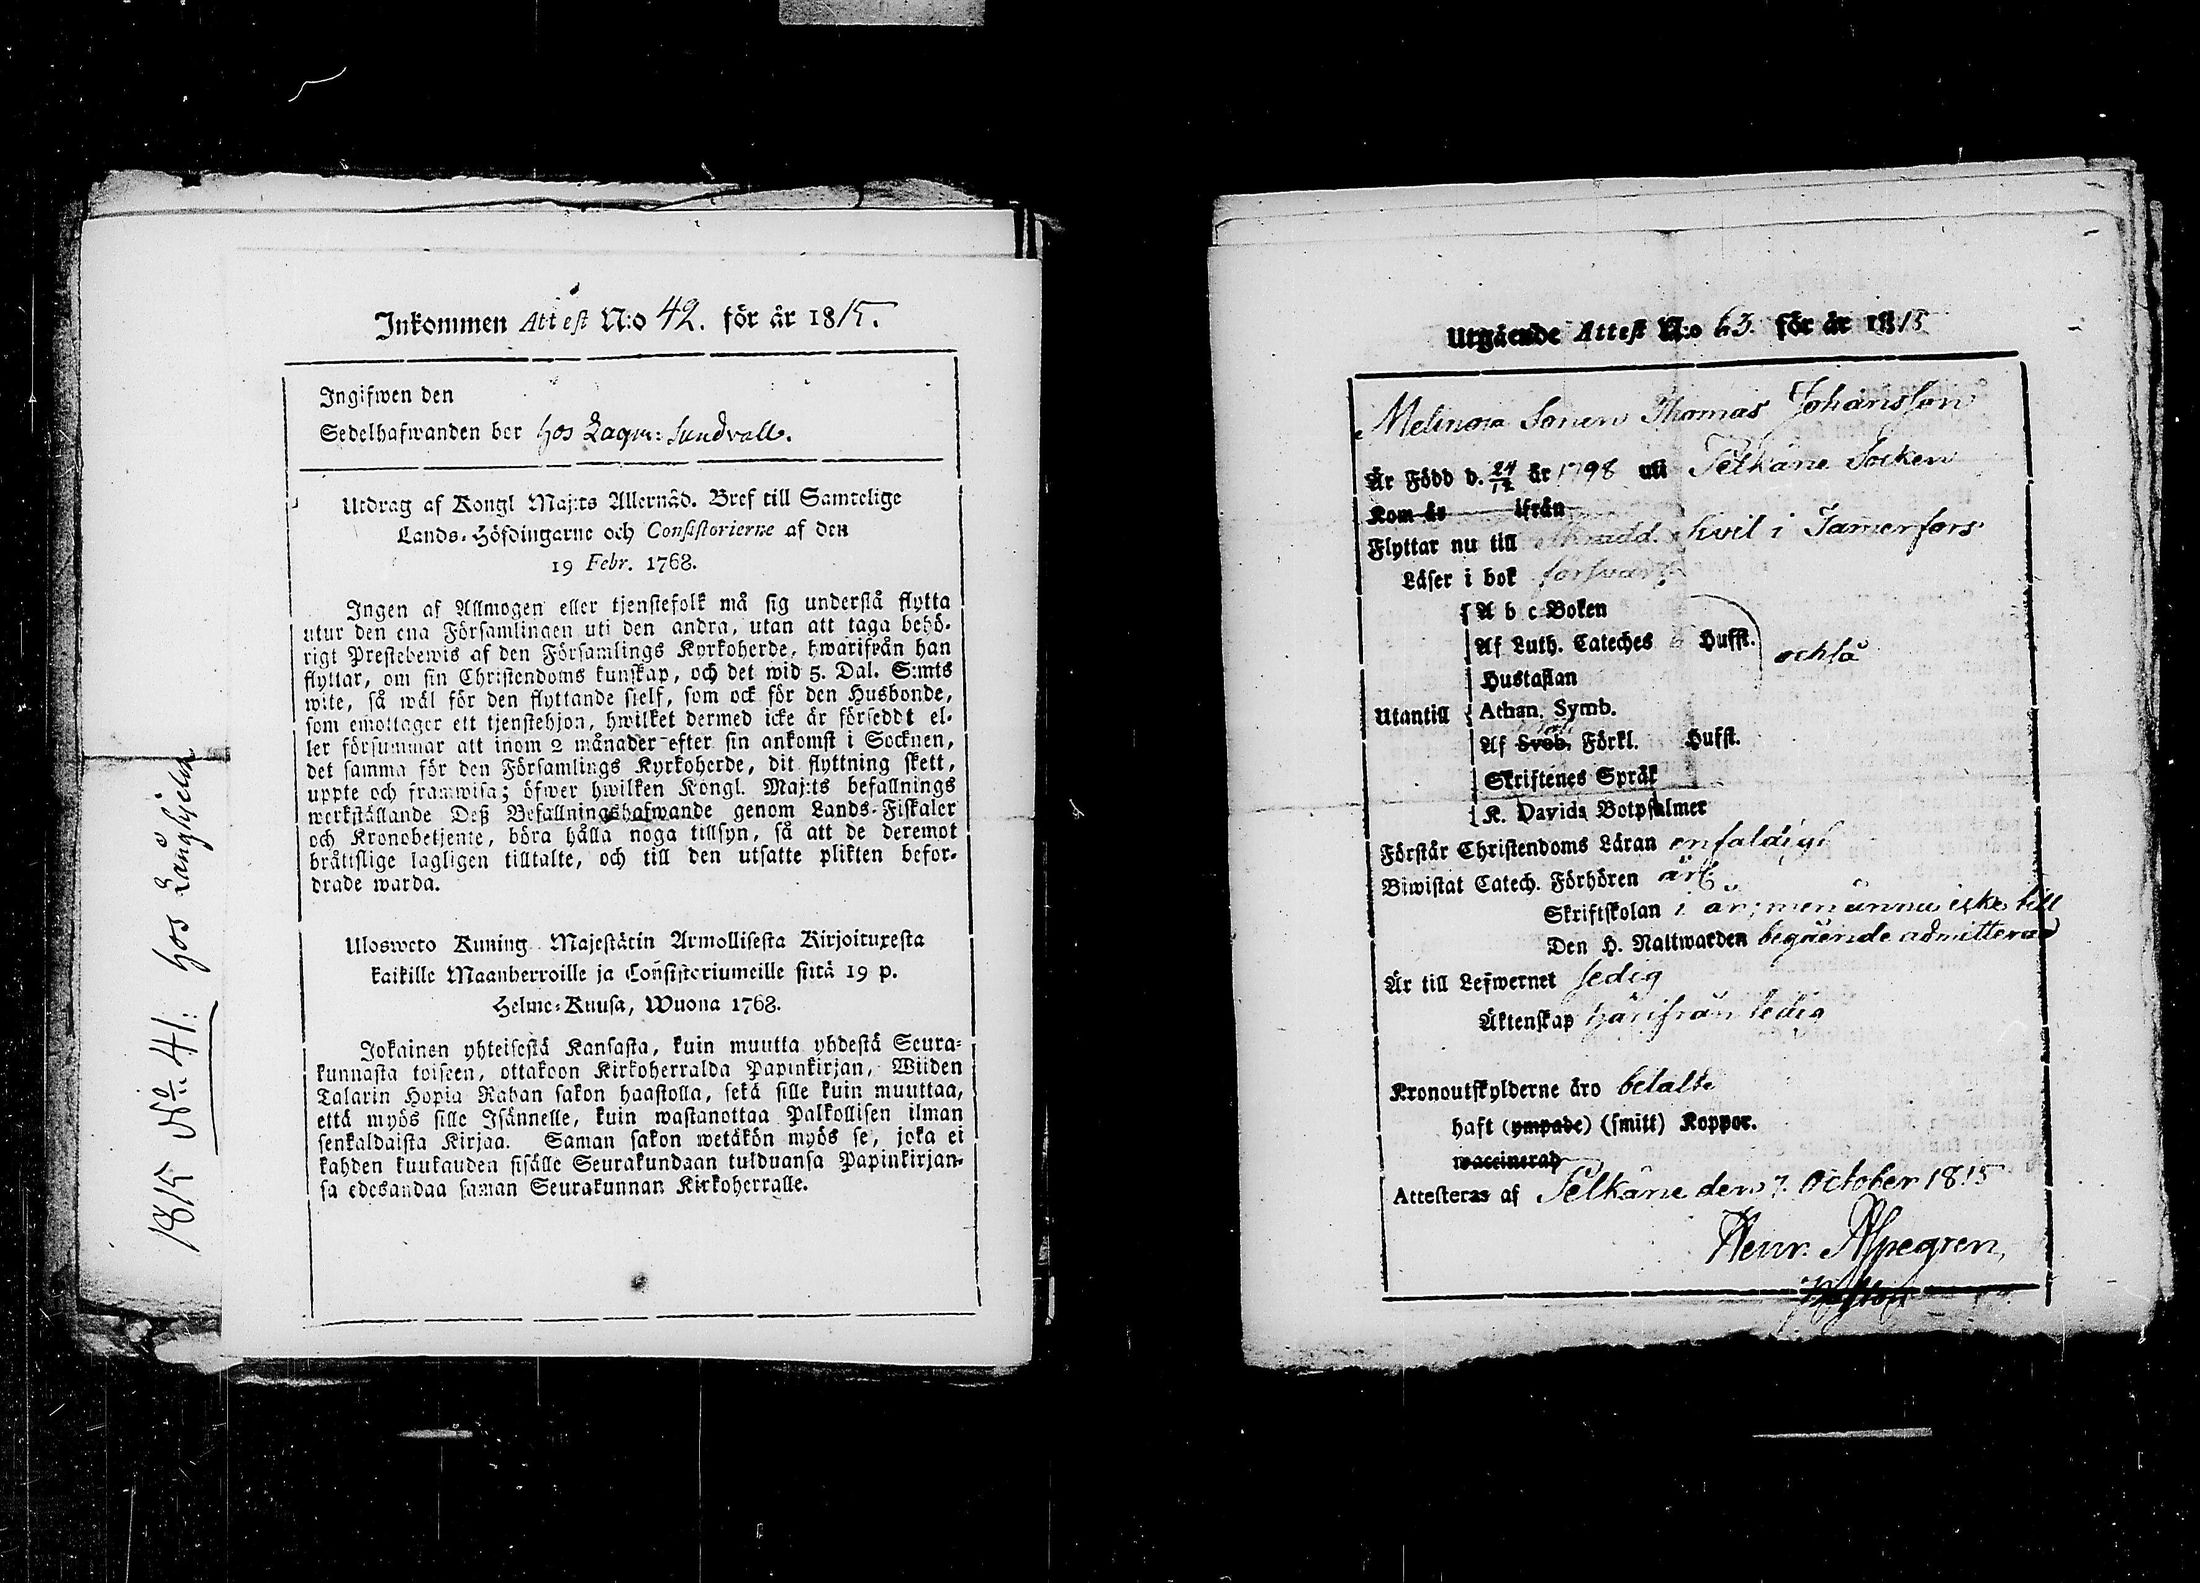 1815 No. 41. hos Långhjelm
Inkommen Attest N:o 42. för år 1815.
Ingifwen den
Sedelhafwanden bor hos Lagm: Sundvall.
Utdrag af Kongl Maj:ts Allernåd. Bref till Samtelige
Lands-Höfdingarne och Consistorierne af den
19 Febr. 1768.
Ingen af Allmogen eller tjenstefolk må sig understå flytta
utur den ena Församlingen uti den andra, utan att taga behö-
rigt Prestebewis af den Församlings Kyrkoherde, hwarifrån han
flyttar, om sin Christendoms kunskap, och det wid 5. Dal. S:mts
wite, så wäl för den flyttande sielf, som ock för den Husbonde,
som emottager ett tjenstehjon, hwilket dermed icke är förseddt el-
ler försummar att inom 2 månader efter sin ankomst i Socknen,
det samma för den Församlings Kyrkoherde, dit flyttning skett,
uppte och framwisa; öfwer hwilken Kongl. Maj:ts befallnings
werkställande Deß Befallningshafwande genom Lands-Fiskaler
och Kronobetjente, böra hålla noga tillsyn, så att de deremot
bråttslige lagligen tilltalte, och till den utsatte plikten befor-
drade warda.
Ulosweto Kuning. Majestätin Armollisesta Kirjoituxesta
kaikille Maanherroille ja Consistoriumeille siitä 19 p.
Helme-Kuusa, Wuona 1768.
Jokainen yhteisestä Kansasta, kuin muutta yhdestä Seura-
kunnasta toiseen, ottakoon Kirkoherralda Papinkirjan, Wiiden
Talarin Hopia Rahan sakon haastolla, sekä sille kuin muuttaa,
että myös sille Isännelle, kuin wastanottaa Palkollisen ilman
senkaldaista Kirjaa. Saman sakon wetäkön myös se, joka ei
kahden kuukauden sisälle Seurakundaan tulduansa Papinkirjan-
sa edesandaa saman Seurakunnan Kirkoherralle.
Utgående Attest N:o 63. för år 1815
Sonen Thomas Johansson
Är Född d. 24/12 år 1798 uti Pelkäne Socken
Kom år ifrån
Flyttar nu till i Tamerfors
Läser i bok försvarl.
A b c Boken
Af Luth. Cateches Hufst.
Hustaflan
också
Utantill Athan. Symb.
Af Sveb. Förkl. Hufst.
Skriftenes Språk
K. Davids Botpsalmer
Förstår Christendoms Läran enfaldigt
Biwistat Catech. Förhören årl.
Skriftskolan i år, men ännu icke till
Den H. Nattwarden begående admitterad
Är till Lefwernet sedig
Äktenskap härifrån ledig
Kronoutskylderne äro betalte
haft (ympade) (smitt) Koppor.
waccinerad
Attesteras af Pelkäne den 7. October 1815
Henr. Alpegren,